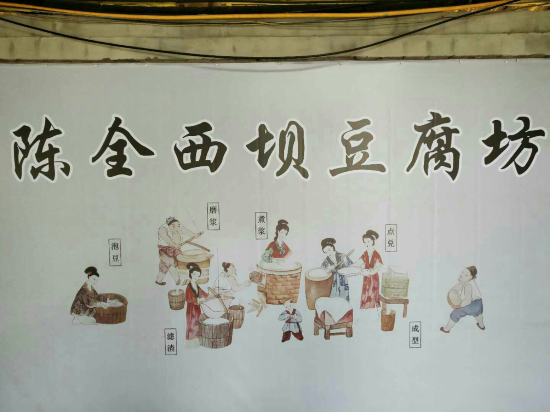 陈全西坝豆腐坊
泡豆
磨浆
滤渣
煮浆
点兑
成型